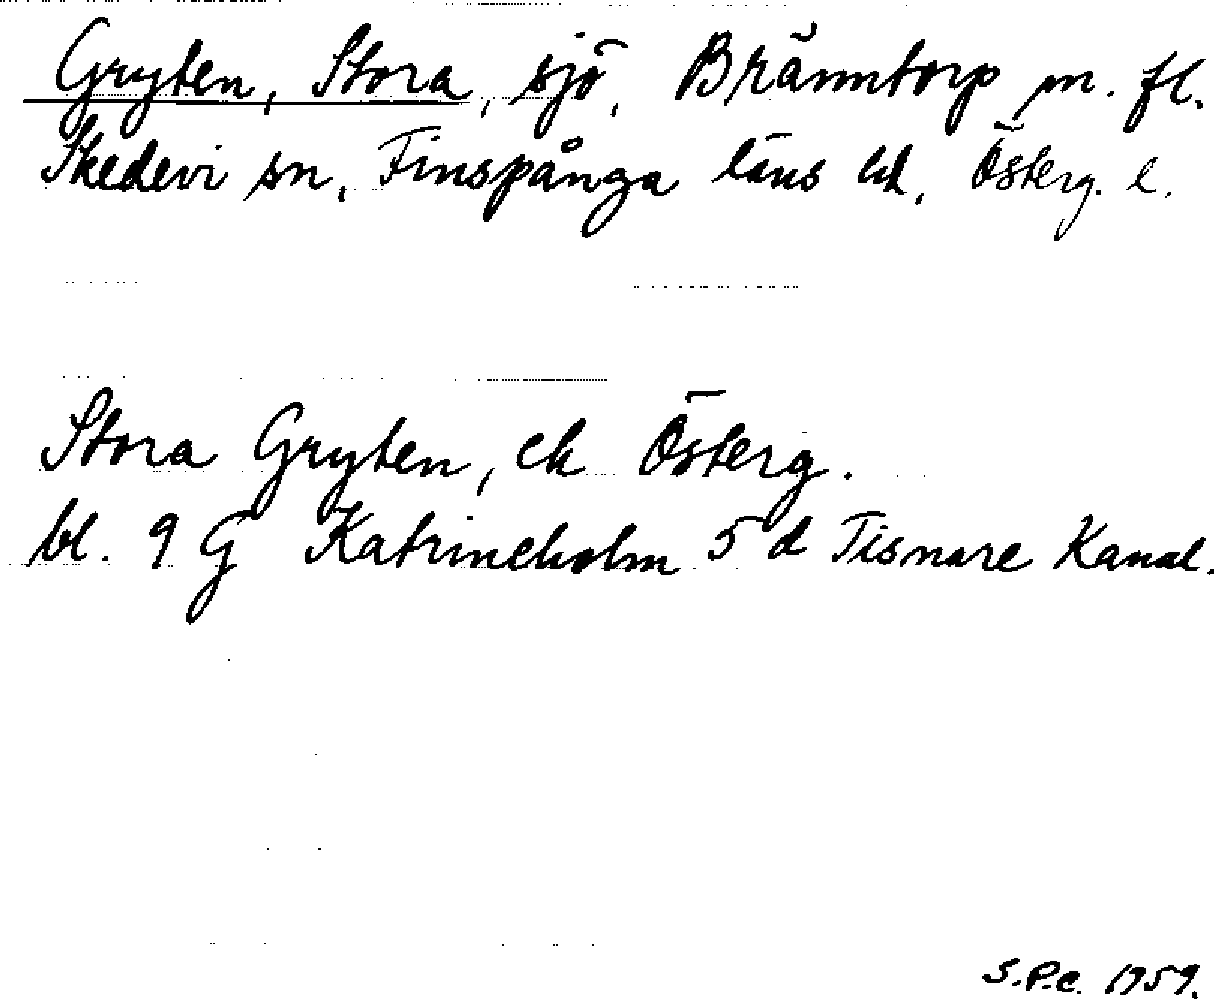 Gryten, Stora, sjö, Bränntorp m. fl.
Skedevi sn, Finspånga läns hd, Österg. l.
Stora Gryten, ek Österg.
bl. 9 G Katrineholm 5 d Tisnare Kanal.
S.P.C. 1959.